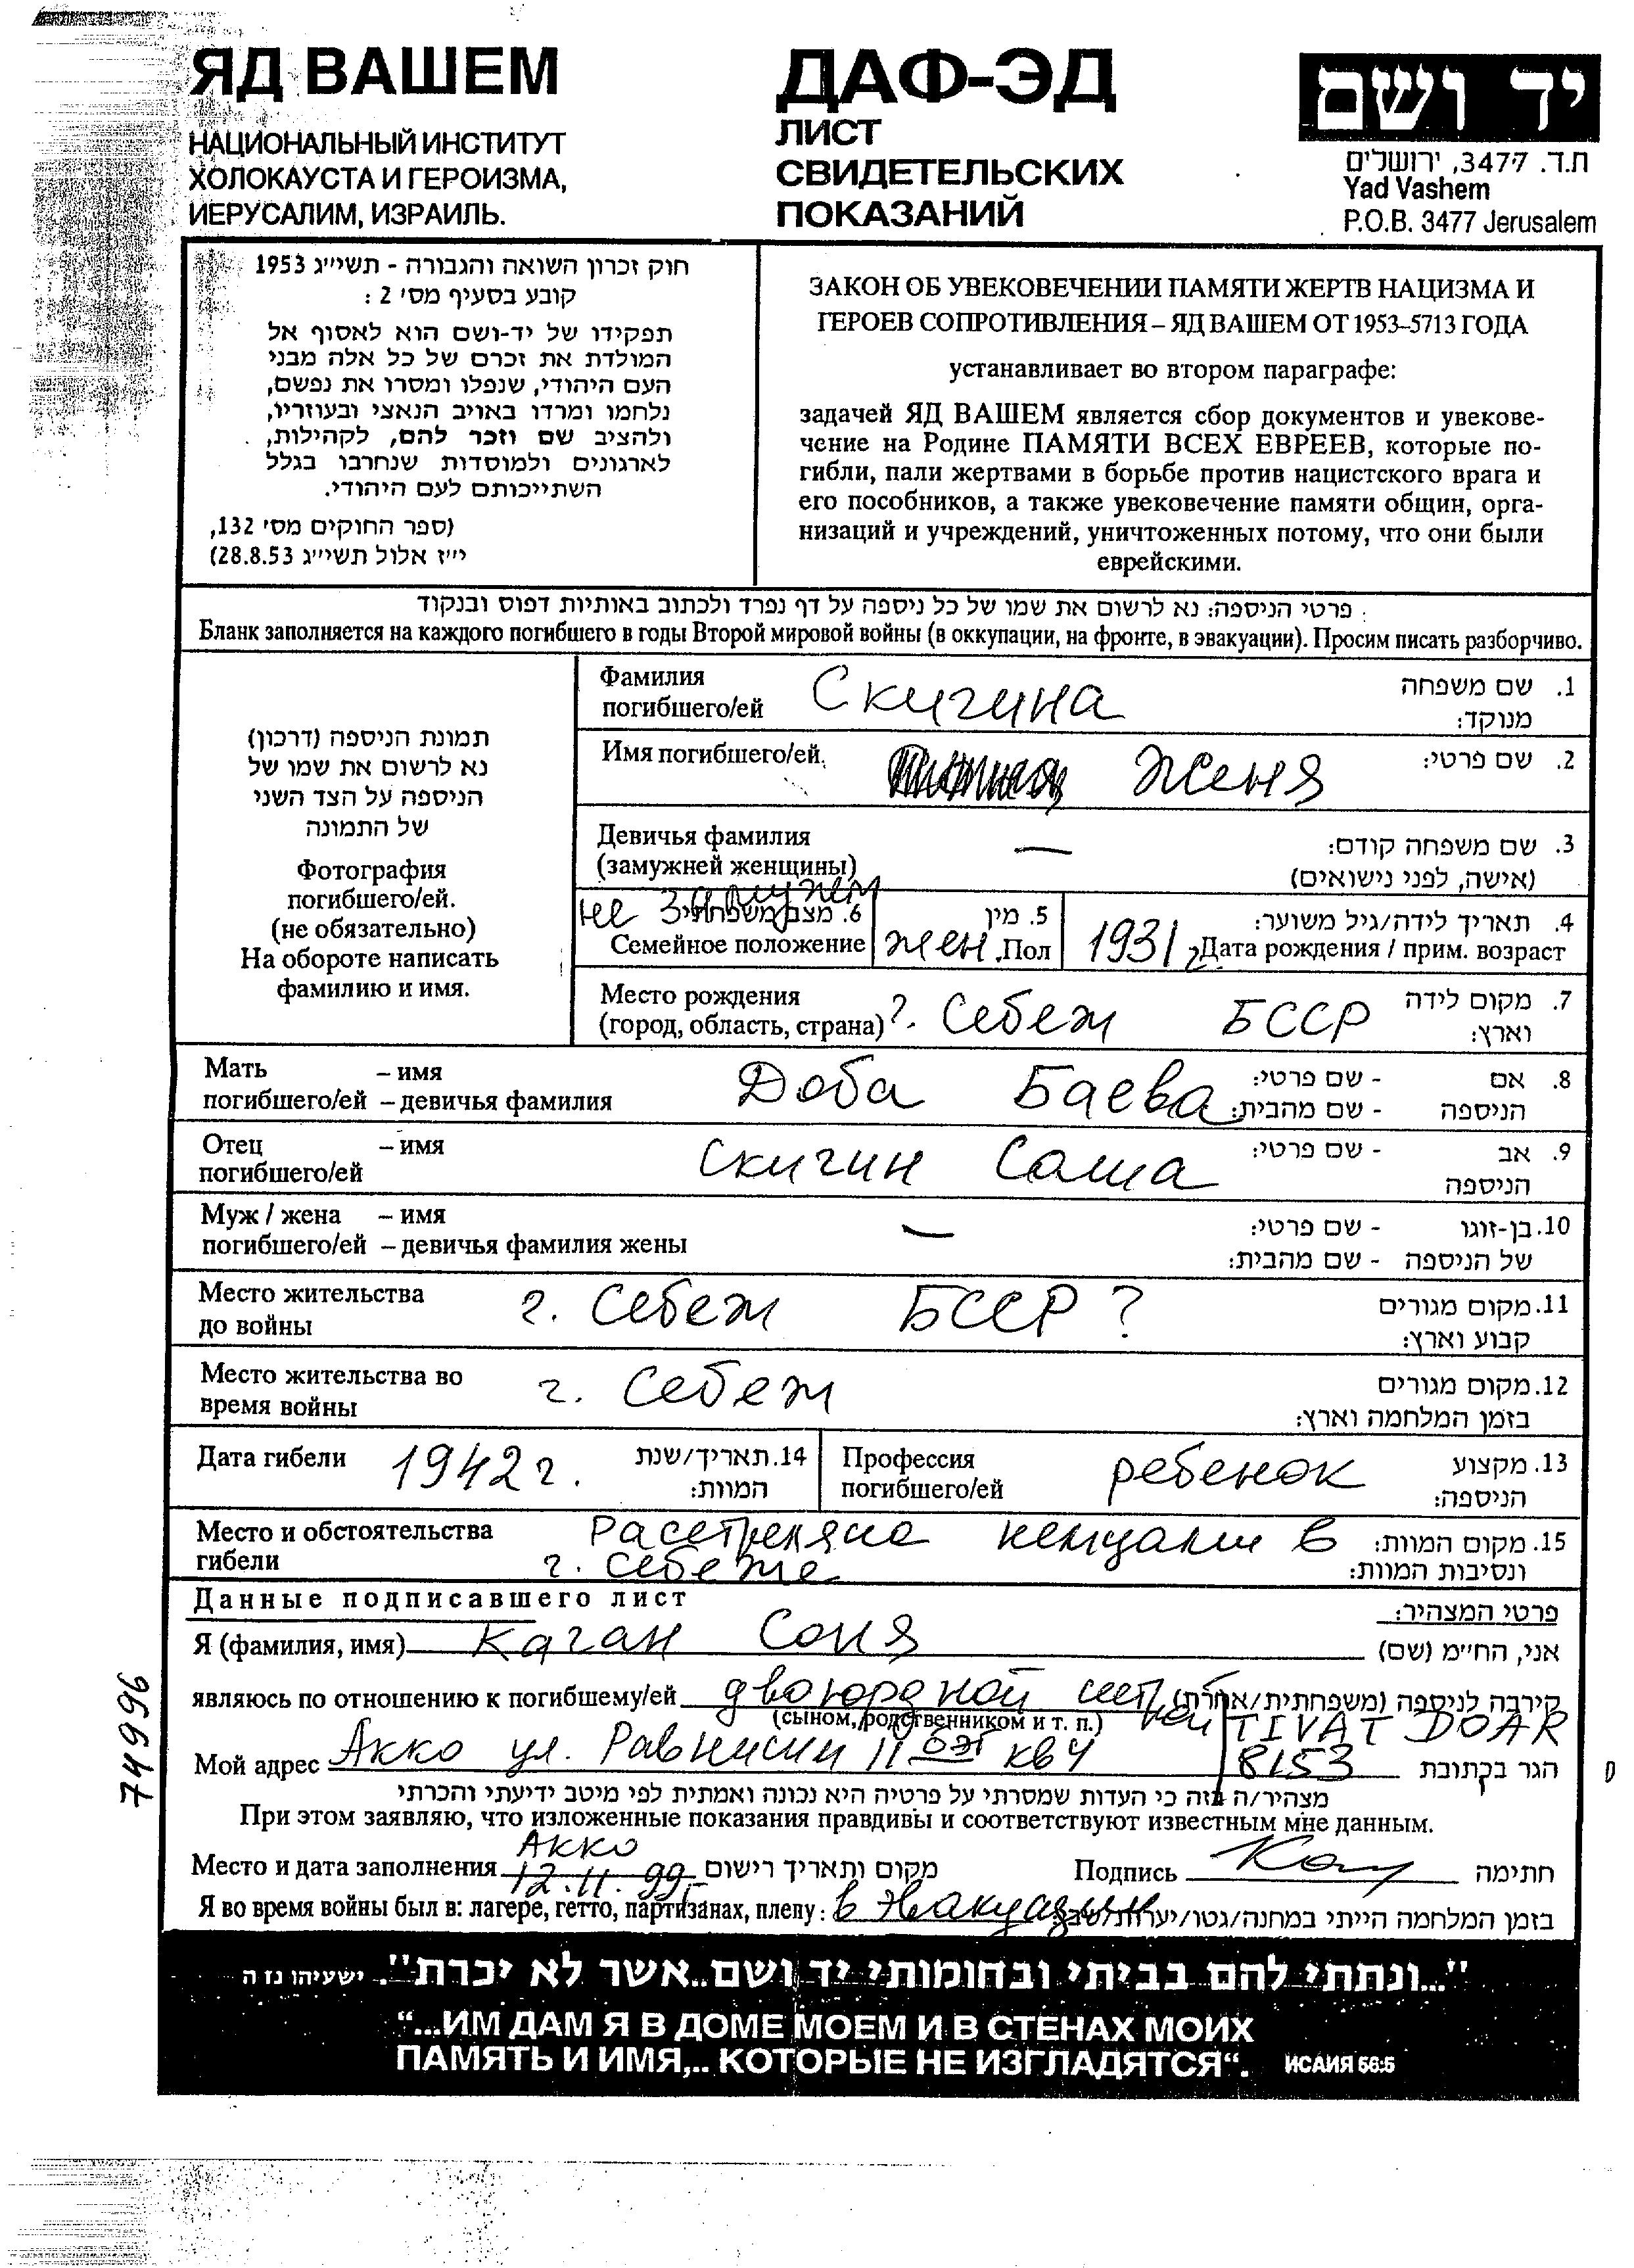 ЯД ВАШЕМ
НАЦИОНАЛЬНЫЙ ИНСТИТУТ
ХОЛОКАУСТА И ГЕРОИЗМА,
ИЕРУСАЛИМ, ИЗРАИЛЬ.
ДАФ-ЭД
ЛИСТ
СВИДЕТЕЛЬСКИХ
ПОКАЗАНИЙ
יד ושם
ת.ד. 3477, ירושלים
Yad Vashem
P.O.B. 3477 Jerusalem
חוק זכרון השואה והגבורה - תשי״ג 1953
קובע בסעיף מס׳ 2 :
תפקידו של יד-ושם הוא לאסוף אל
המולדת את זכרם של כל אלה מבני
העם היהודי, שנפלו ומסרו את נפשם,
נלחמו ומרדו באויב הנאצי ובעוזריו,
ולהציב שם וזכר להם, לקהילות,
לארגונים ולמוסדות שנחרבו בגלל
השתייכותם לעם היהודי.
(ספר החוקים מס׳ 132,
י״ז אלול תשי״ג 28.8.53)
ЗАКОН ОБ УВЕКОВЕЧЕНИИ ПАМЯТИ ЖЕРТВ НАЦИЗМА И
ГЕРОЕВ СОПРОТИВЛЕНИЯ – ЯД ВАШЕМ ОТ 1953–5713 ГОДА
устанавливает во втором параграфе:
задачей ЯД ВАШЕМ является сбор документов и увекове-
чение на Родине ПАМЯТИ ВСЕХ ЕВРЕЕВ, которые по-
гибли, пали жертвами в борьбе против нацистского врага и
его пособников, а также увековечение памяти общин, орга-
низаций и учреждений, уничтоженных потому, что они были
еврейскими.
פרטי הניספה: נא לרשום את שמו של כל ניספה על דף נפרד ולכתוב באותיות דפוס ובנקוד :
Бланк заполняется на каждого погибшего в годы Второй мировой войны (в оккупации, на фронте, в эвакуации). Просим писать разборчиво.
תמונת הניספה (דרכון)
נא לרשום את שמו של
הניספה על הצד השני
של התמונה
Фотография
погибшего/ей.
(не обязательно)
На обороте написать
фамилию и имя.
Фамилия Скигина 1. שם משפחה
погибшего/ей מנוקד:
Имя погибшего/ей. Женя 2. שם פרטי:
Девичья фамилия — 3. שם משפחה קודם:
(замужней женщины) (אישה, לפני נישואים)
не замужем 6. מצב משפחתי: 5. מין 4. תאריך לידה/גיל משוער:
Семейное положение жен. Пол 1931 г Дата рождения / прим. возраст
Место рождения 7. מקום לידה
(город, область, страна) г. Себеж БССР וארץ:
Мать – имя Доба Баева - שם פרטי: 8. אם
погибшего/ей – девичья фамилия - שם מהבית: הניספה
Отец – имя Скигин Саша - שם פרטי: 9. אב
погибшего/ей הניספה
Муж / жена – имя — - שם פרטי: 10. בן-זוגו
погибшего/ей – девичья фамилия жены - שם מהבית: של הניספה
Место жительства г. Себеж БССР? 11. מקום מגורים
до войны קבוע וארץ:
Место жительства во г. Себеж 12. מקום מגורים
время войны בזמן המלחמה וארץ:
Дата гибели 1942 г. 14. תאריך/שנת Профессия ребенок 13. מקצוע
המוות: погибшего/ей הניספה:
Место и обстоятельства Расстреляна немцами в 15. מקום המוות:
гибели г. Себеже ונסיבות המוות:
Данные подписавшего лист פרטי המצהיר:
Я (фамилия, имя) Каган Соня אני, הח״מ (שם)
являюсь по отношению к погибшему/ей двоюродной קירבה לניספה (משפחתית/אחרת)
(сыном, родственником и т. п.) TIVAT DOAR
Мой адрес Акко ул. 11 кв 4 8153 הגר בכתובת
מצהיר/ה בזה כי העדות שמסרתי על פרטיה היא נכונה ואמתית לפי מיטב ידיעתי והכרתי
При этом заявляю, что изложенные показания правдивы и соответствуют известным мне данным.
Акко
Место и дата заполнения 12.11.99г. מקום ותאריך רישום Подпись חתימה
Я во время войны был в: лагере, гетто, партизанах, плену: в эвакуации בזמן המלחמה הייתי במחנה/גטו/יערות/שבי:
74996
"...ונתתי להם בביתי ובחומותי יד ושם..אשר לא יכרת". ישעיהו נו ה
“...ИМ ДАМ Я В ДОМЕ МОЕМ И В СТЕНАХ МОИХ
ПАМЯТЬ И ИМЯ,.. КОТОРЫЕ НЕ ИЗГЛАДЯТСЯ“. ИСАИЯ 56:5